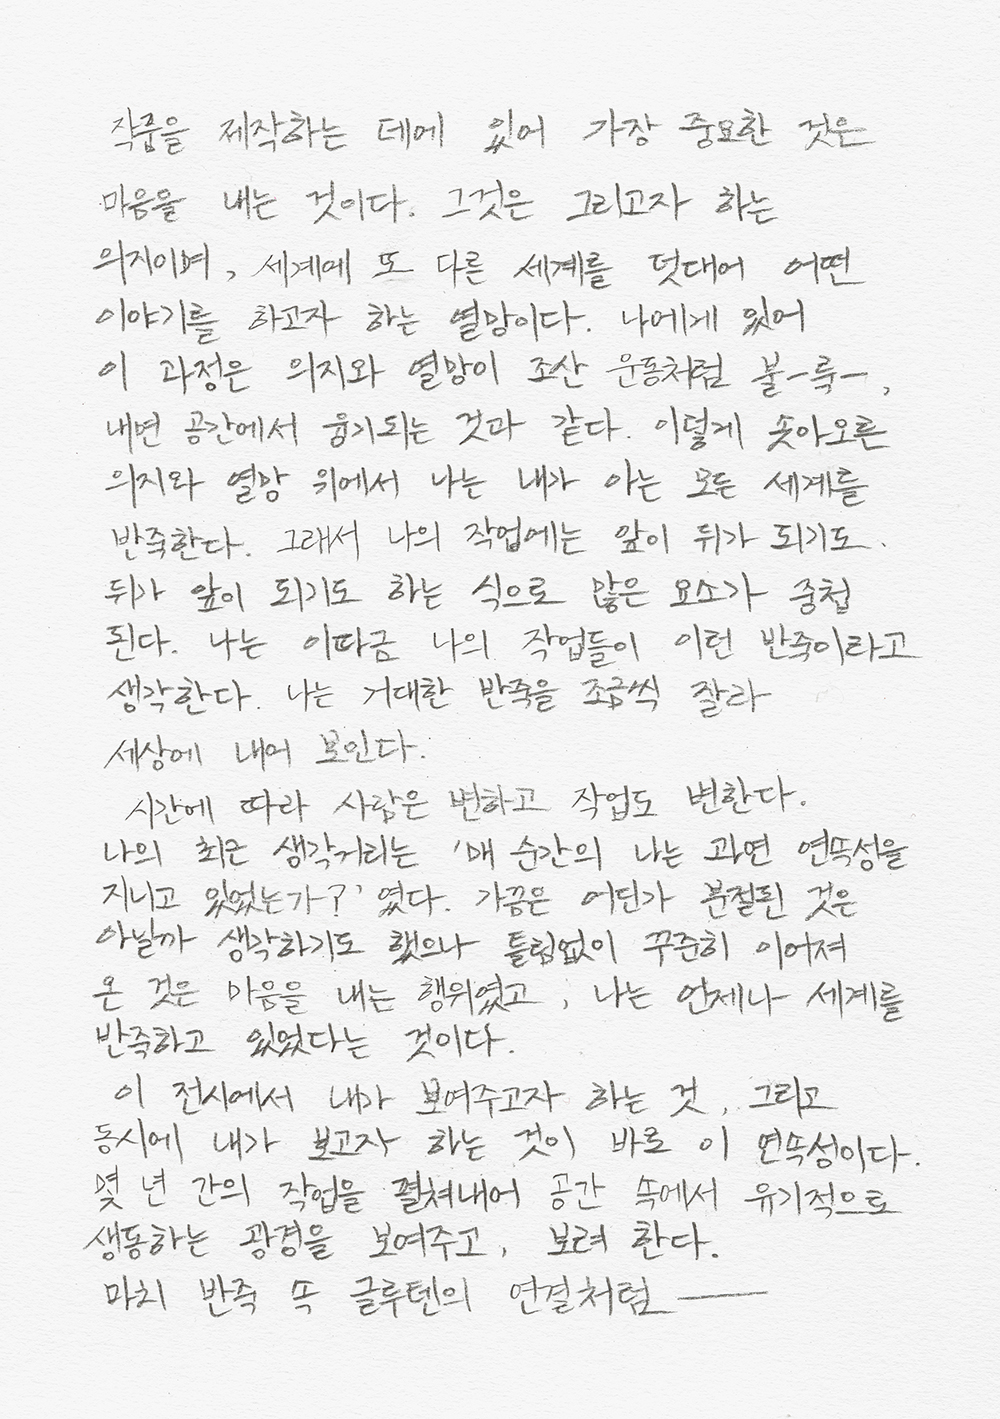 작품을 제작하는 데에 있어 가장 중요한 것은
마음을 내는 것이다. 그것은 그리고자 하는
의지이며, 세계에 또 다른 세계를 덧대어 어떤
이야기를 하고자 하는 열망이다. 나에게 있어
이 과정은 의지와 열망이 조산 운동처럼 불-룩-,
내면 공간에서 융기되는 것과 같다. 이렇게 솟아오른
의지와 열망 위에서 나는 내가 아는 모든 세계를
반죽한다. 그래서 나의 작업에는 앞이 뒤가 되기도
뒤가 앞이 되기도 하는 식으로 많은 요소가 중첩
된다. 나는 이따금 나의 작업들이 이런 반죽이라고
생각한다. 나는 거대한 반죽을 조금씩 잘라
세상에 내어 보인다.
시간에 따라 사람은 변하고 작업도 변한다.
나의 최근 생각거리는 '매 순간의 나는 과연 연속성을
지니고 있었는가?' 였다. 가끔은 어딘가 분절된 것은
아닐까 생각하기도 했으나 틀림없이 꾸준히 이어져
온 것은 마음을 내는 행위였고, 나는 언제나 세계를
반죽하고 있었다는 것이다.
이 전시에서 내가 보여주고자 하는 것, 그리고
동시에 내가 보고자 하는 것이 바로 이 연속성이다.
몇 년 간의 작업을 펼쳐내어 공간 속에서 유기적으로
생동하는 광경을 보여주고, 보려 한다.
마치 반죽 속 글루텐의 연결처럼 ——